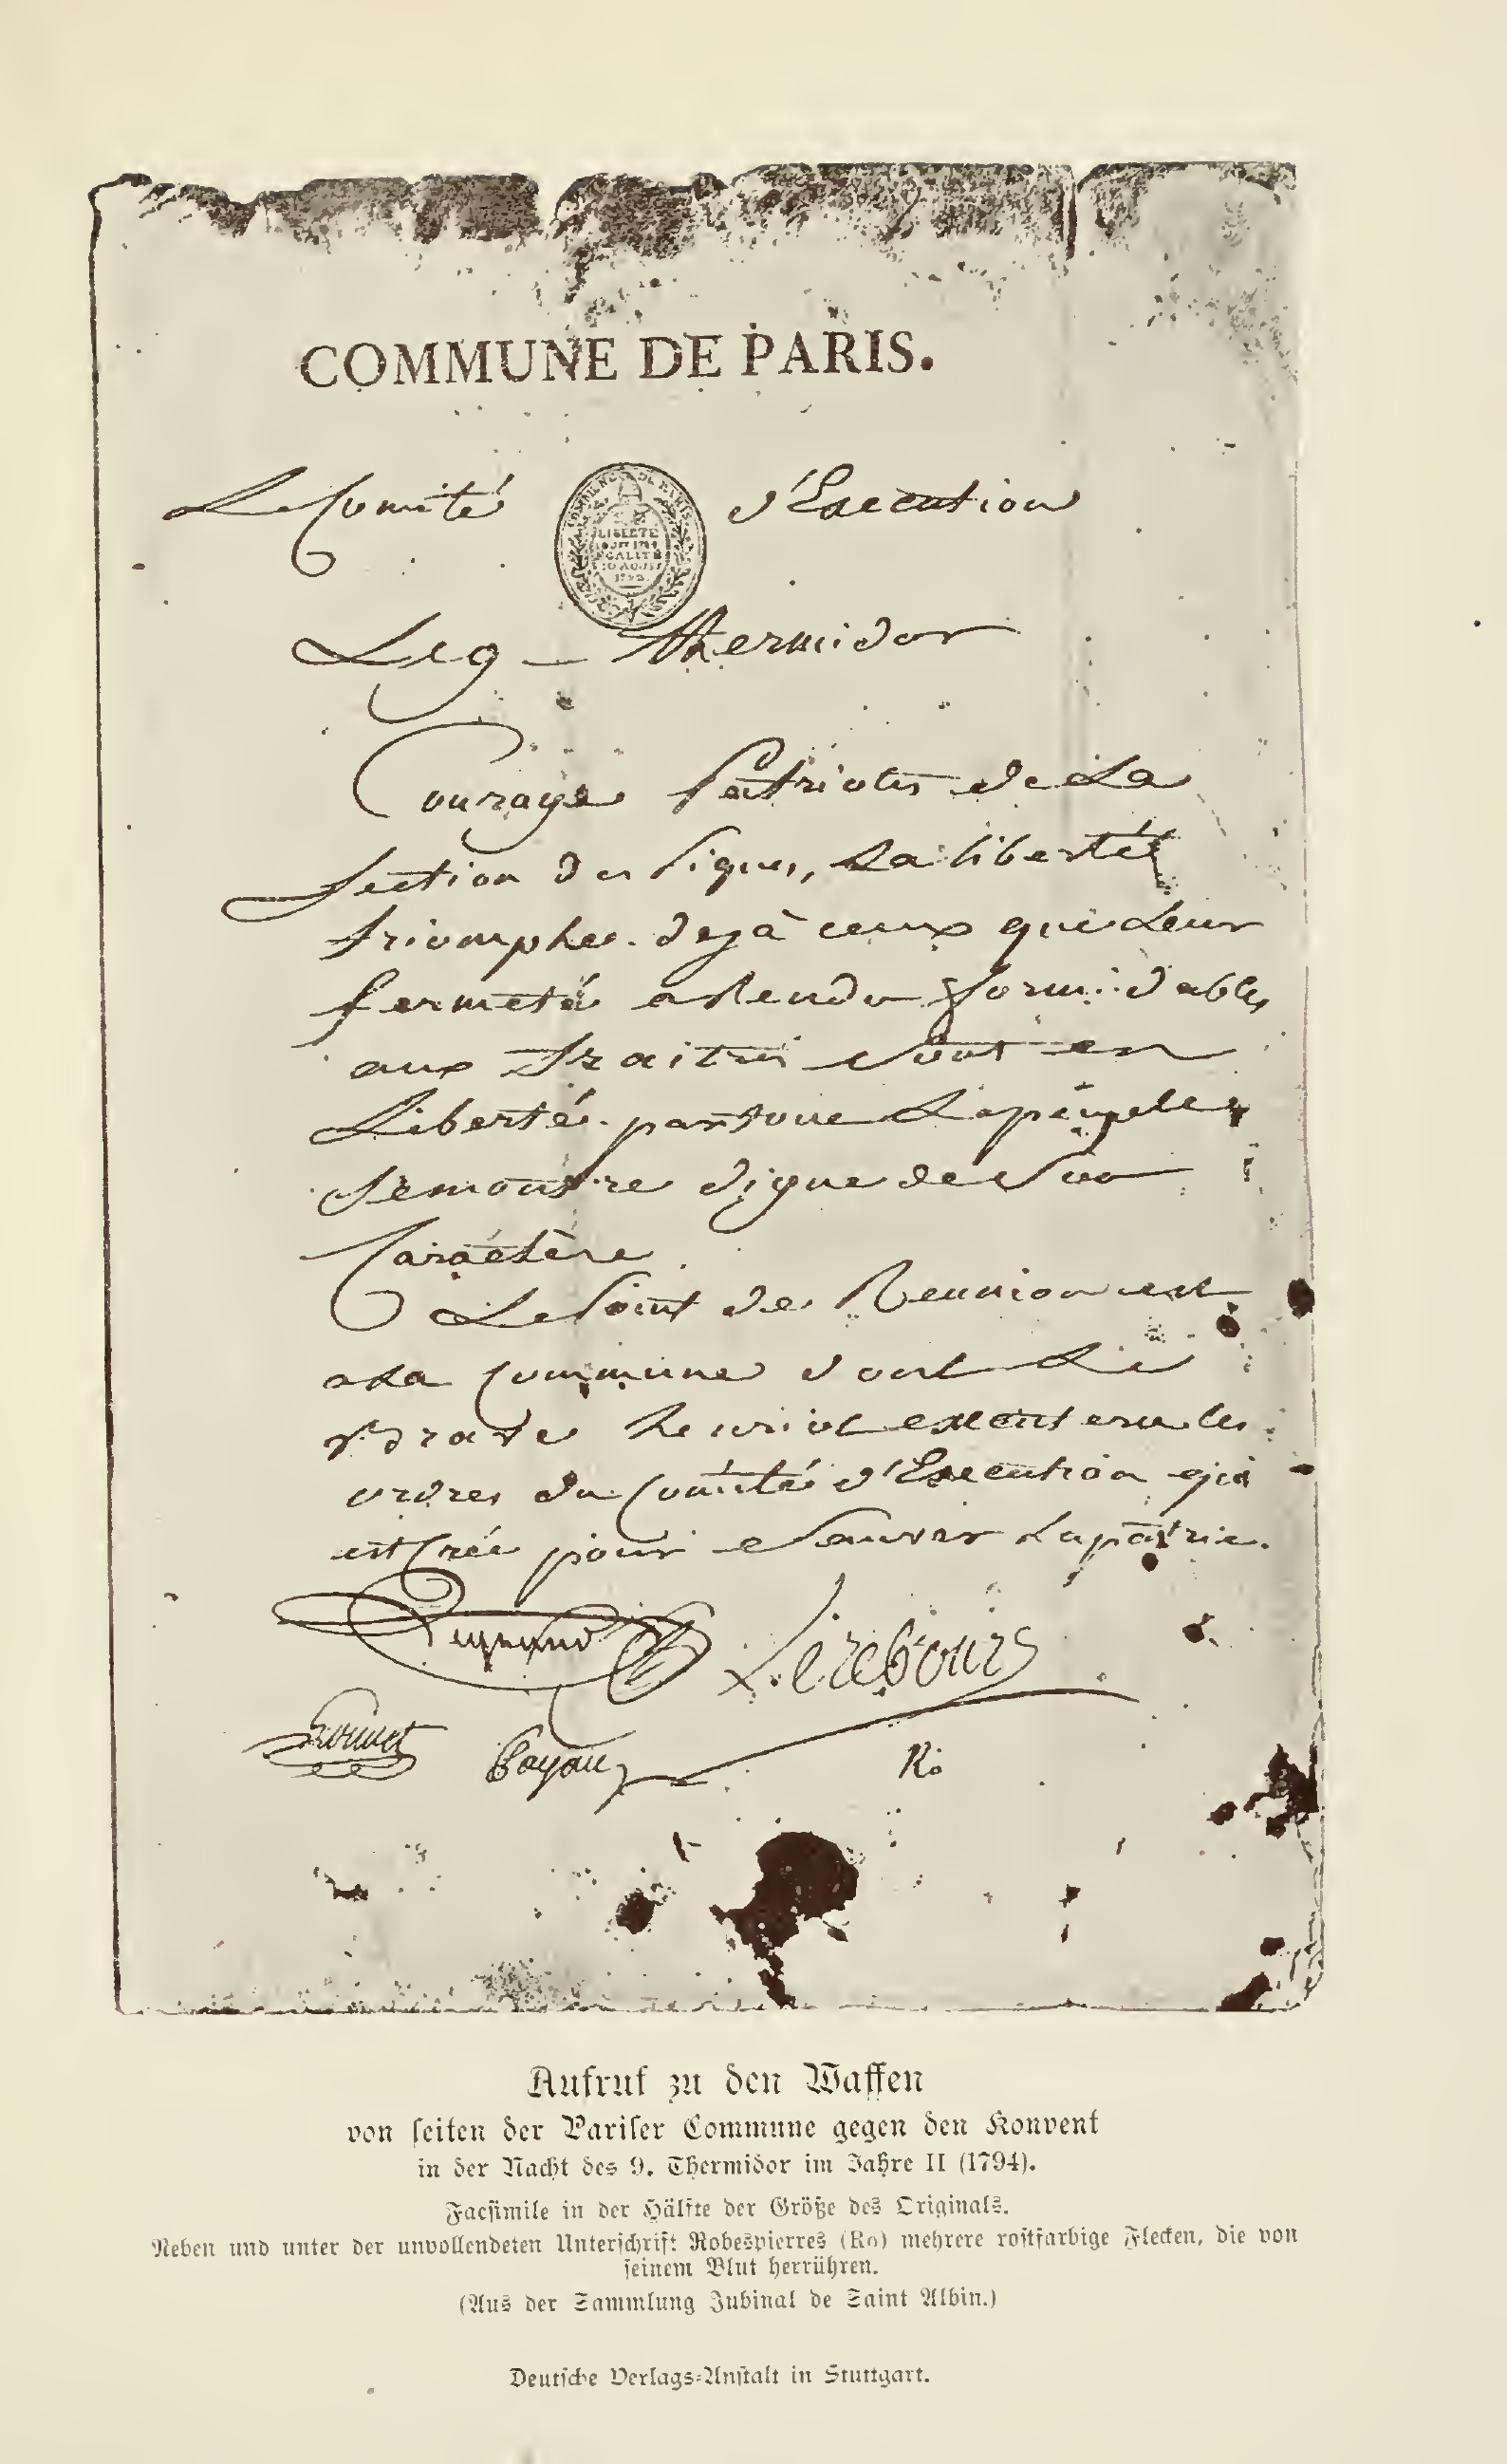 COMMUNE DE PARIS.
Le Comité d'Execution
COMMUNE DE PARIS
LIBERTÉ
ÉGALITÉ
10 AOUST
1792
Le 9 - thermidor
Courage Patriotes de La
Section des Piques, La liberté
triomphe. deja ceux que Leur
fermeté a Rendu formidables
aux traitres Sont en
Liberté. partout Le peuple
Se montre digne de Son
Caractère.
Le Point de Reunion est
a La Commune dont Le
brave henriot executera les
ordres du Comité d'Execution qui
est Créé pour Sauver La patrie.
Legrand Lerebours
Louvet Payan Ro
Aufruf zu den Waffen
von seiten der Pariser Commune gegen den Konvent
in der Nacht des 9. Thermidor im Jahre II (1794).
Facsimile in der Hälfte der Größe des Originals.
Neben und unter der unvollendeten Unterschrift Robespierres (Ro) mehrere rostfarbige Flecken, die von
seinem Blut herrühren.
(Aus der Sammlung Jubinal de Saint Albin.)
Deutsche Verlags-Anstalt in Stuttgart.